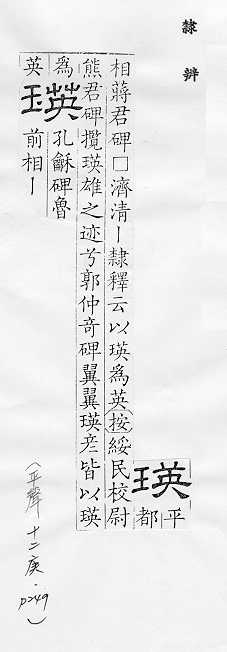 隸辨
瑛
平
都
相蔣君碑□濟清丨隸釋云以瑛為英(按)綏民校尉
熊君碑攬瑛雄之迹兮郭仲奇碑翼翼瑛彥皆以瑛
為
英
瑛
孔龢碑魯
前相丨
(平聲 十二庚・p249)